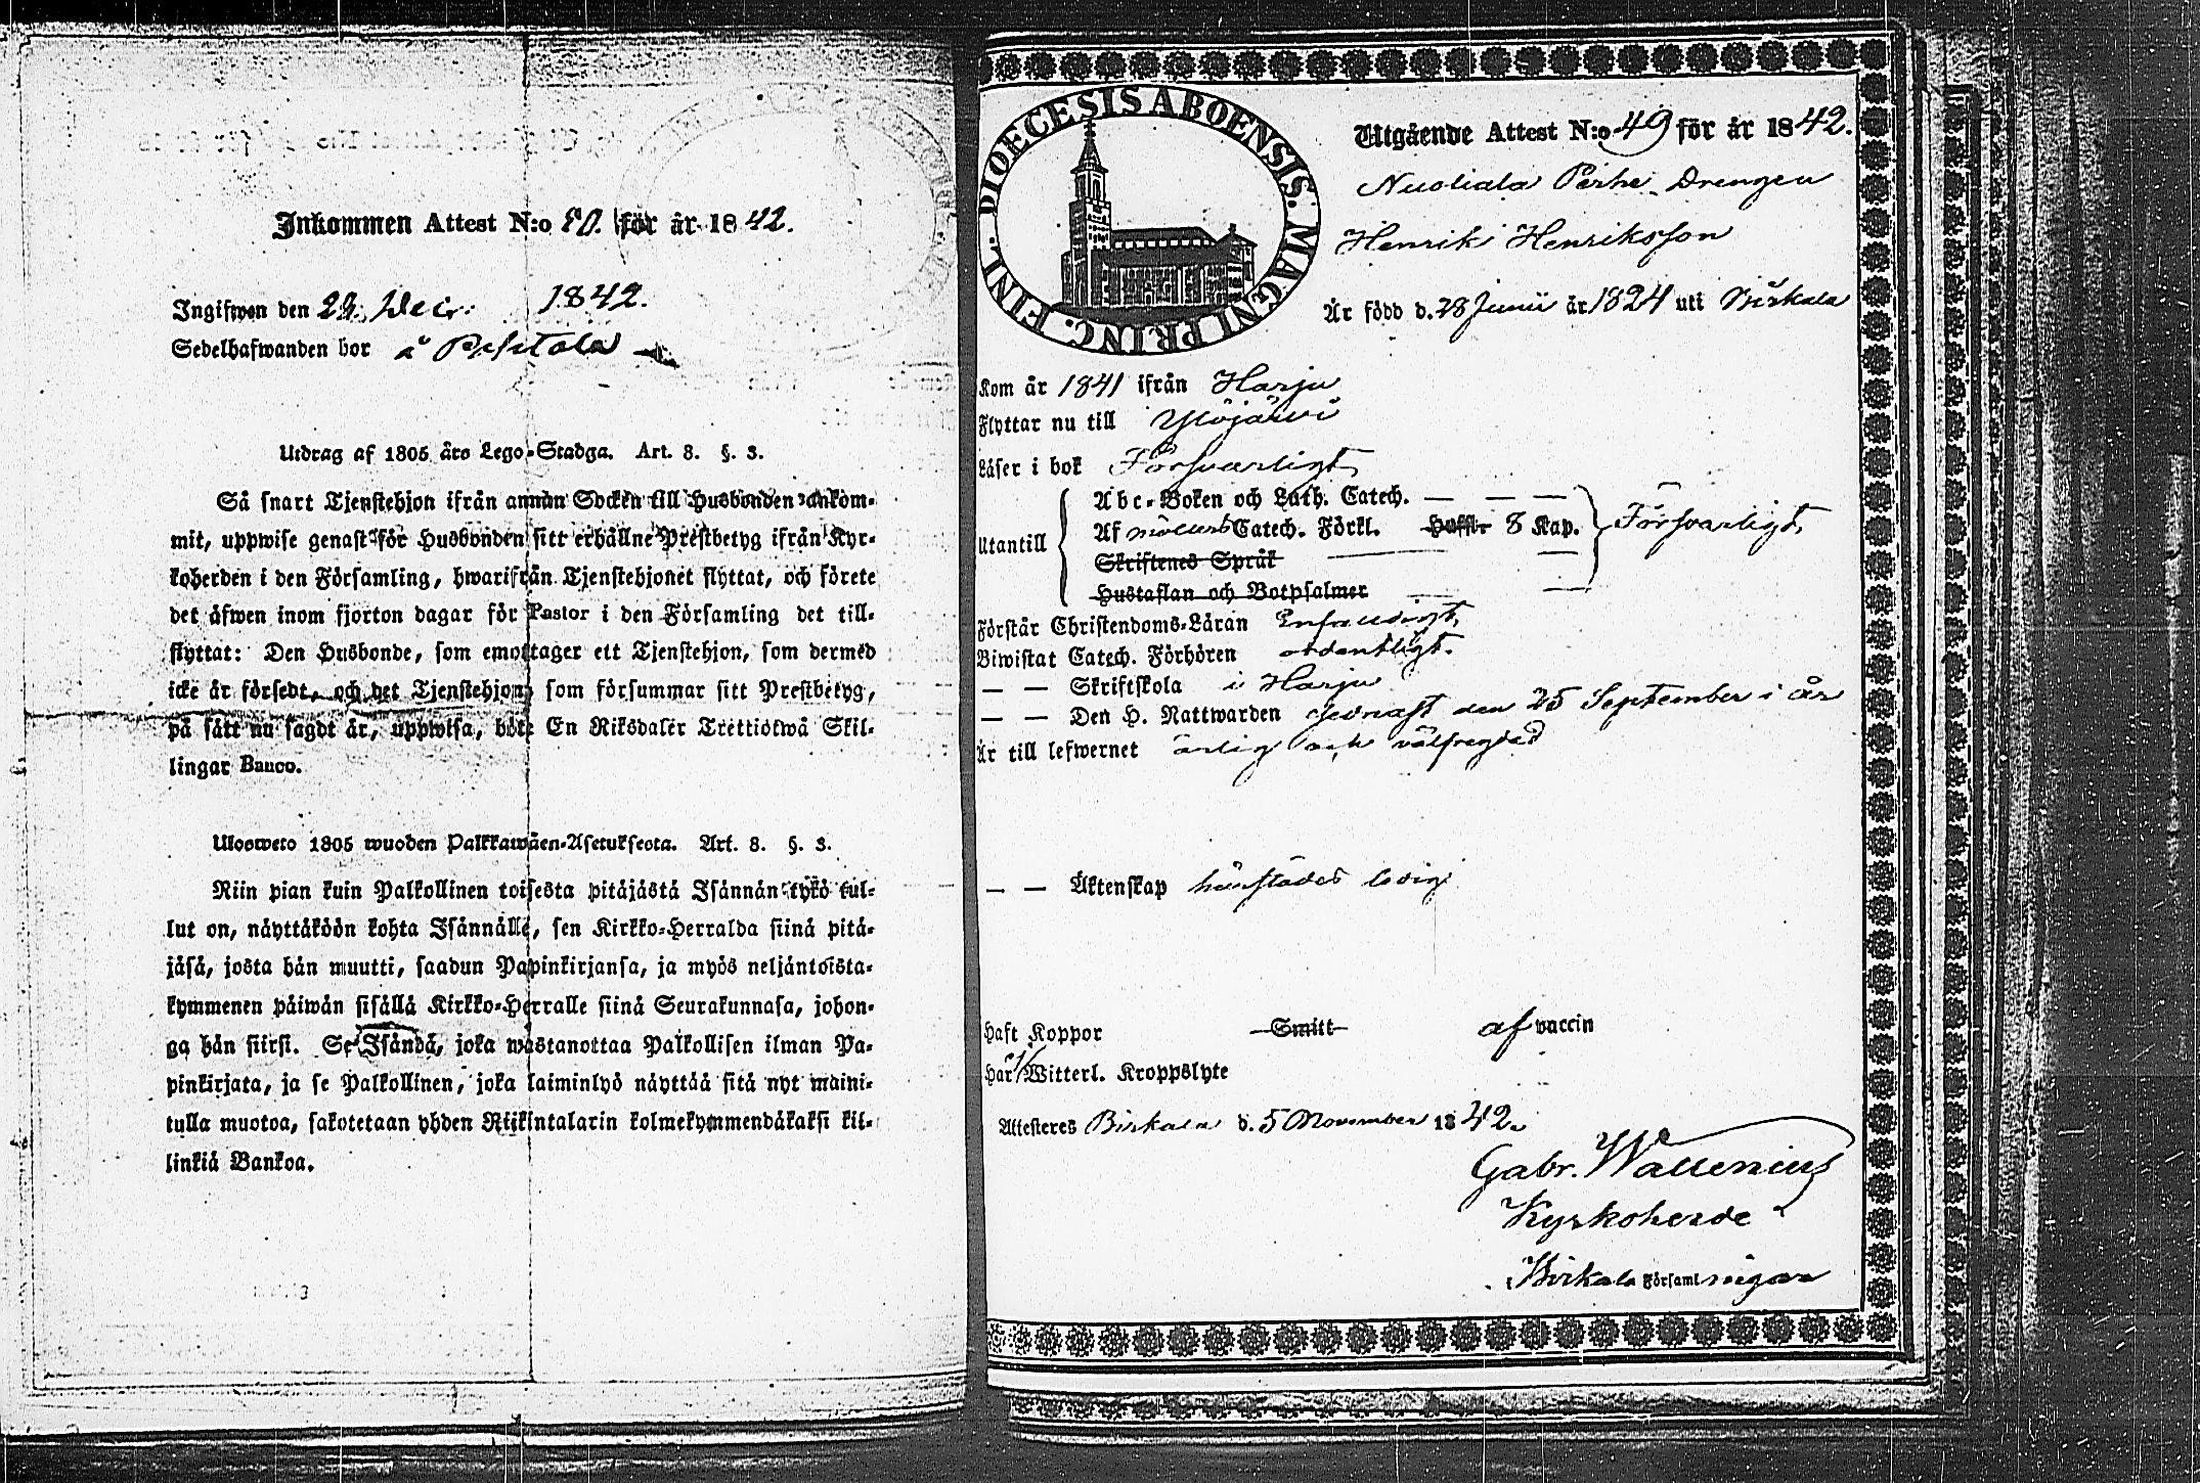 Inkommen Attest N:o 80. för år 1842.
Ingifwen den 29. Dec. 1842.
Sedelhafwanden bor å
Utdrag af 1805 års Lego-Stadga. Art. 8. §. 3.
Så snart Tjenstehjon ifrån annan Socken till Husbonden ankom-
mit, uppwise genast för Husbonden sitt erhållne Prestbetyg ifrån Kyr-
koherden i den Församling, hwarifrån Tjenstehjonet flyttat, och förete
det äfwen inom fjorton dagar för Pastor i den Församling det till-
flyttat: Den Husbonde, som emottager ett Tjenstehjon, som dermed
icke är försedt, och det Tjenstehjon, som försummar sitt Prestbetyg,
på sätt nu sagdt är, uppwisa, böte En Riksdaler Trettiotwå Skil-
lingar Banco.
Ulosweto 1805 wuoden Palkkawäen-Asetuksesta. Art. 8. §. 3.
Niin pian kuin Palkollinen toisesta pitäjästä Isännän tykö tul-
lut on, näyttäköön kohta Isännälle, sen Kirkko-Herralda siinä pitä-
jäsä, josta hän muutti, saadun Papinkirjansa, ja myös neljäntoista-
kymmenen päiwän sisällä Kirkko-Herralle siinä Seurakunnasa, johon-
ga hän siirsi. Se Isändä, joka wastanottaa Palkollisen ilman Pa-
pinkirjata, ja se Palkollinen, joka laiminlyö näyttää sitä nyt maini-
tulla muotoa, sakotetaan yhden Riikintalarin kolmekymmendäkaksi kil-
linkiä Bankoa.
DIOECESIS ABOENSIS. MAGNI PRINC. FINL.
Utgående Attest N:o 49 för år 1842.
Nuoliala Perhe Drengen
Henrik Henriksson
Är född d. 28 Junii år 1824 uti Birkala
Kom år 1841 ifrån Harju
Flyttar nu till Ylöjärvi
Läser i bok Försvarligt
Utantill
Abc-Boken och Luth. Catech. — — —
Af Möllers Catech. Förkl. Hustfl. 8 Kap.
Skriftenes Språk
Hustaflan och Botpsalmer
Försvarligt,
Förstår Christendoms-Läran Enfaldigt,
Biwistat Catech. Förhören ordentligt.
— — Skriftskola i Harju
— — Den H. Nattwarden sednast den 25 September i år
Är till lefwernet ärlig och välfrejdad
— — Äktenskap härstädes ledig
Haft Koppor Smitt af vaccin
Har Witterl. Kroppslyte
Attesteres Birkala d. 5 November 1842.
Gabr. Wallenius
Kyrkoherde
Birkala Församlningar